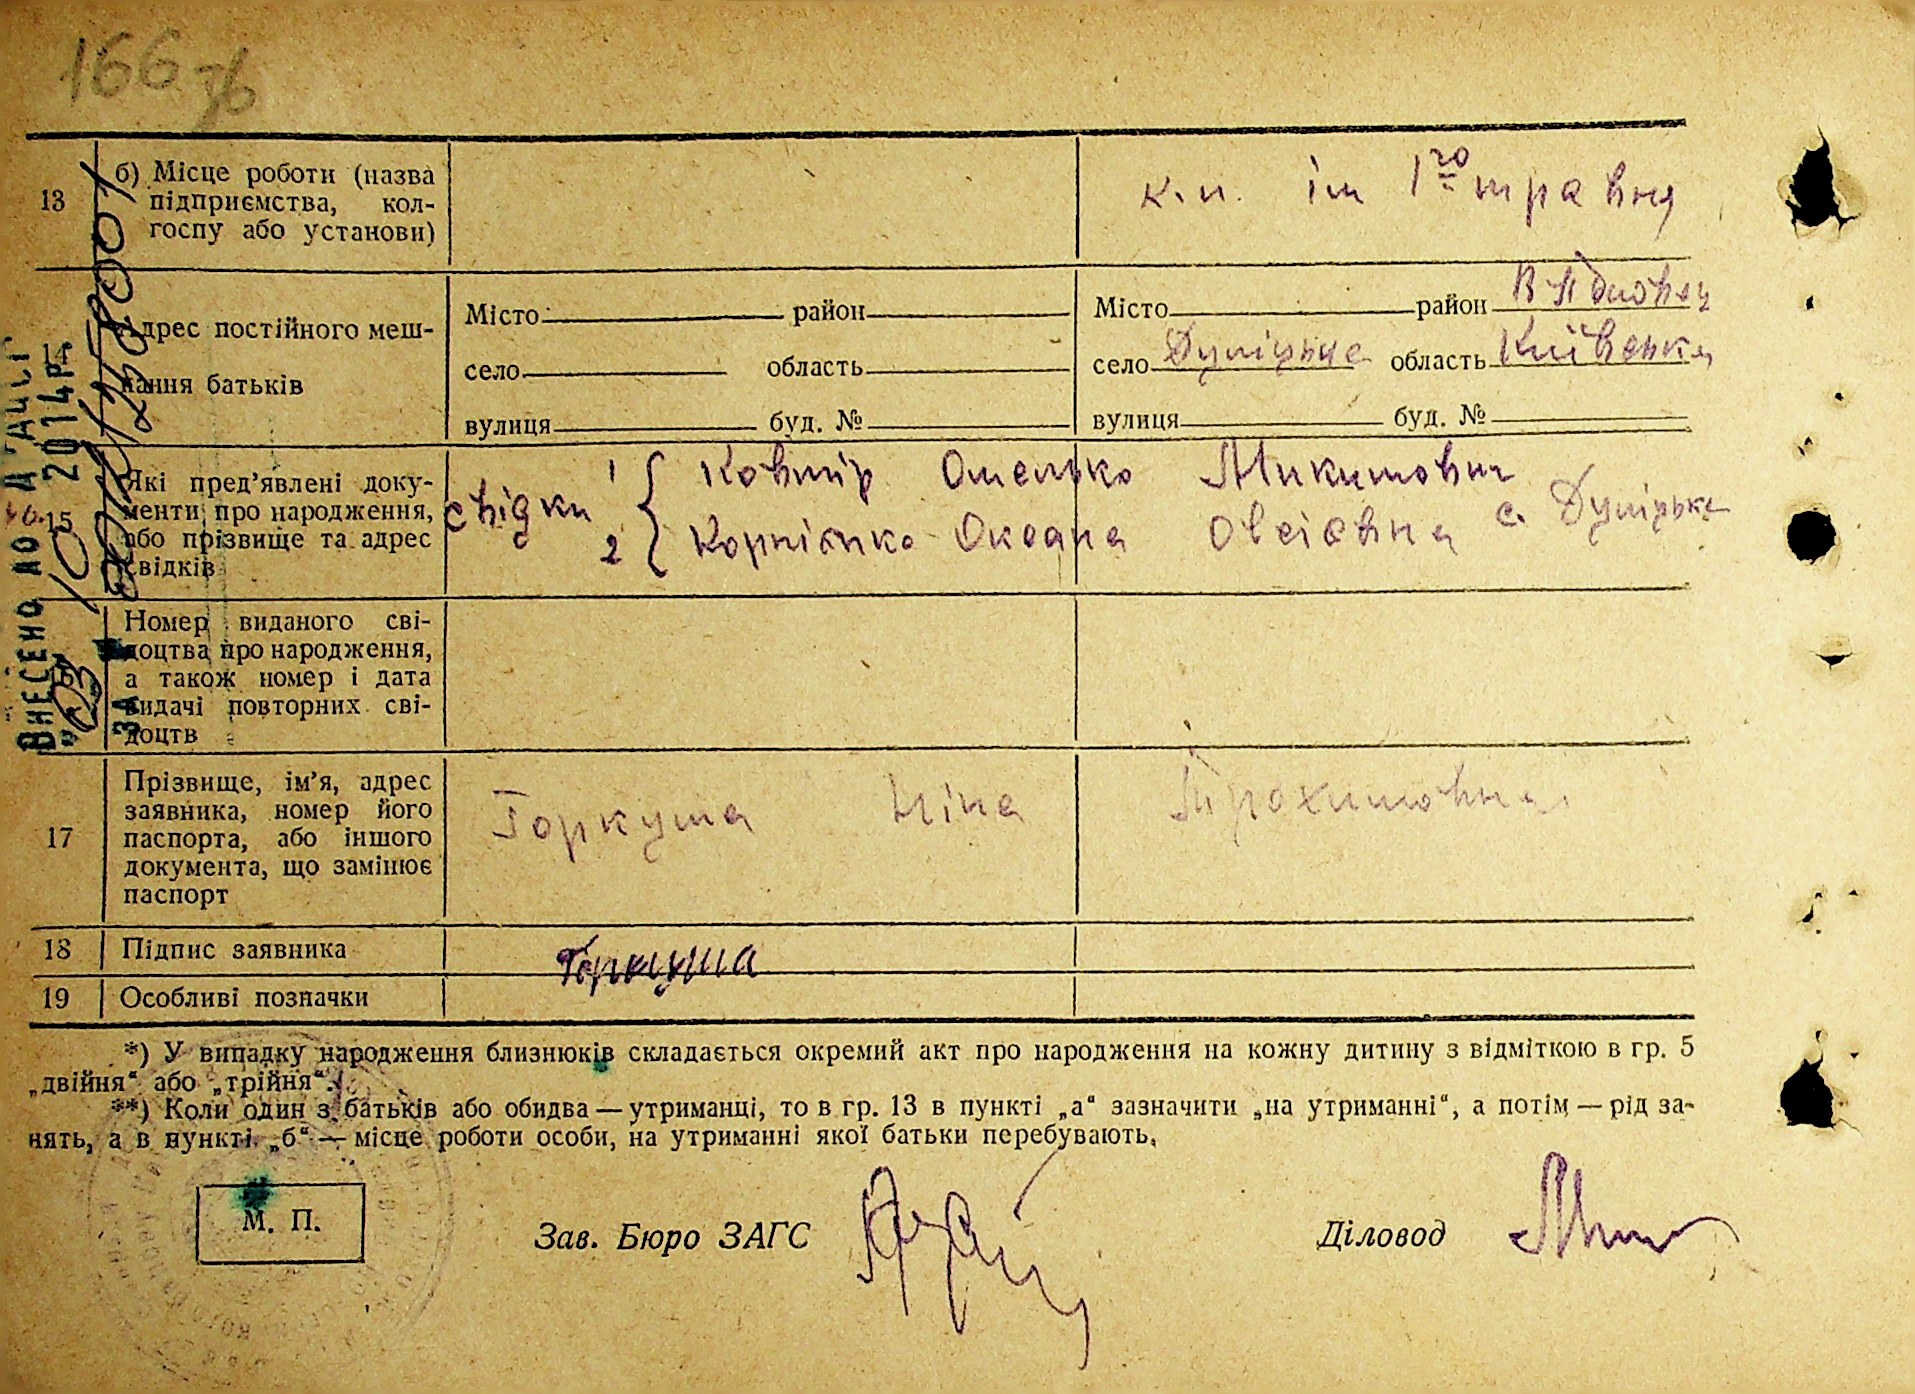 166 зв
13
б) Місце роботи (назва
підприємства, кол-
госпу або установи)
к.п. ім 1го травня
14
Адрес постійного меш-
кання батьків
Місто район
село область
вулиця буд. №
Місто район
село Дулицьке область Київська
вулиця буд. №
15
Які пред'явлені доку-
менти про народження,
або прізвище та адрес
свідків
свідки
1 Ковтір Омелько Микитович
2 Корнієнко Оксана Овсієвна с. Дуліцьке
16
Номер виданого сві-
доцтва про народження,
а також номер і дата
видачі повторних сві-
доцтв
17
Прізвище, ім'я, адрес
заявника, номер його
паспорта, або іншого
документа, що замінює
паспорт
Горкуша Ніна Трохимовна
18 Підпис заявника
Горкуша
19 Особливі позначки
*) У випадку народження близнюків складається окремий акт про народження на кожну дитину з відміткою в гр. 5
„двійня“ або „трійня“.
**) Коли один з батьків або обидва — утриманці, то в гр. 13 в пункті „а“ зазначити „на утриманні“, а потім — рід за-
нять, а в пункті „б“ — місце роботи особи, на утриманні якої батьки перебувають.
М. П.
Зав. Бюро ЗАГС
Діловод
ВНЕСЕНО ДО
2014р.
ЗА